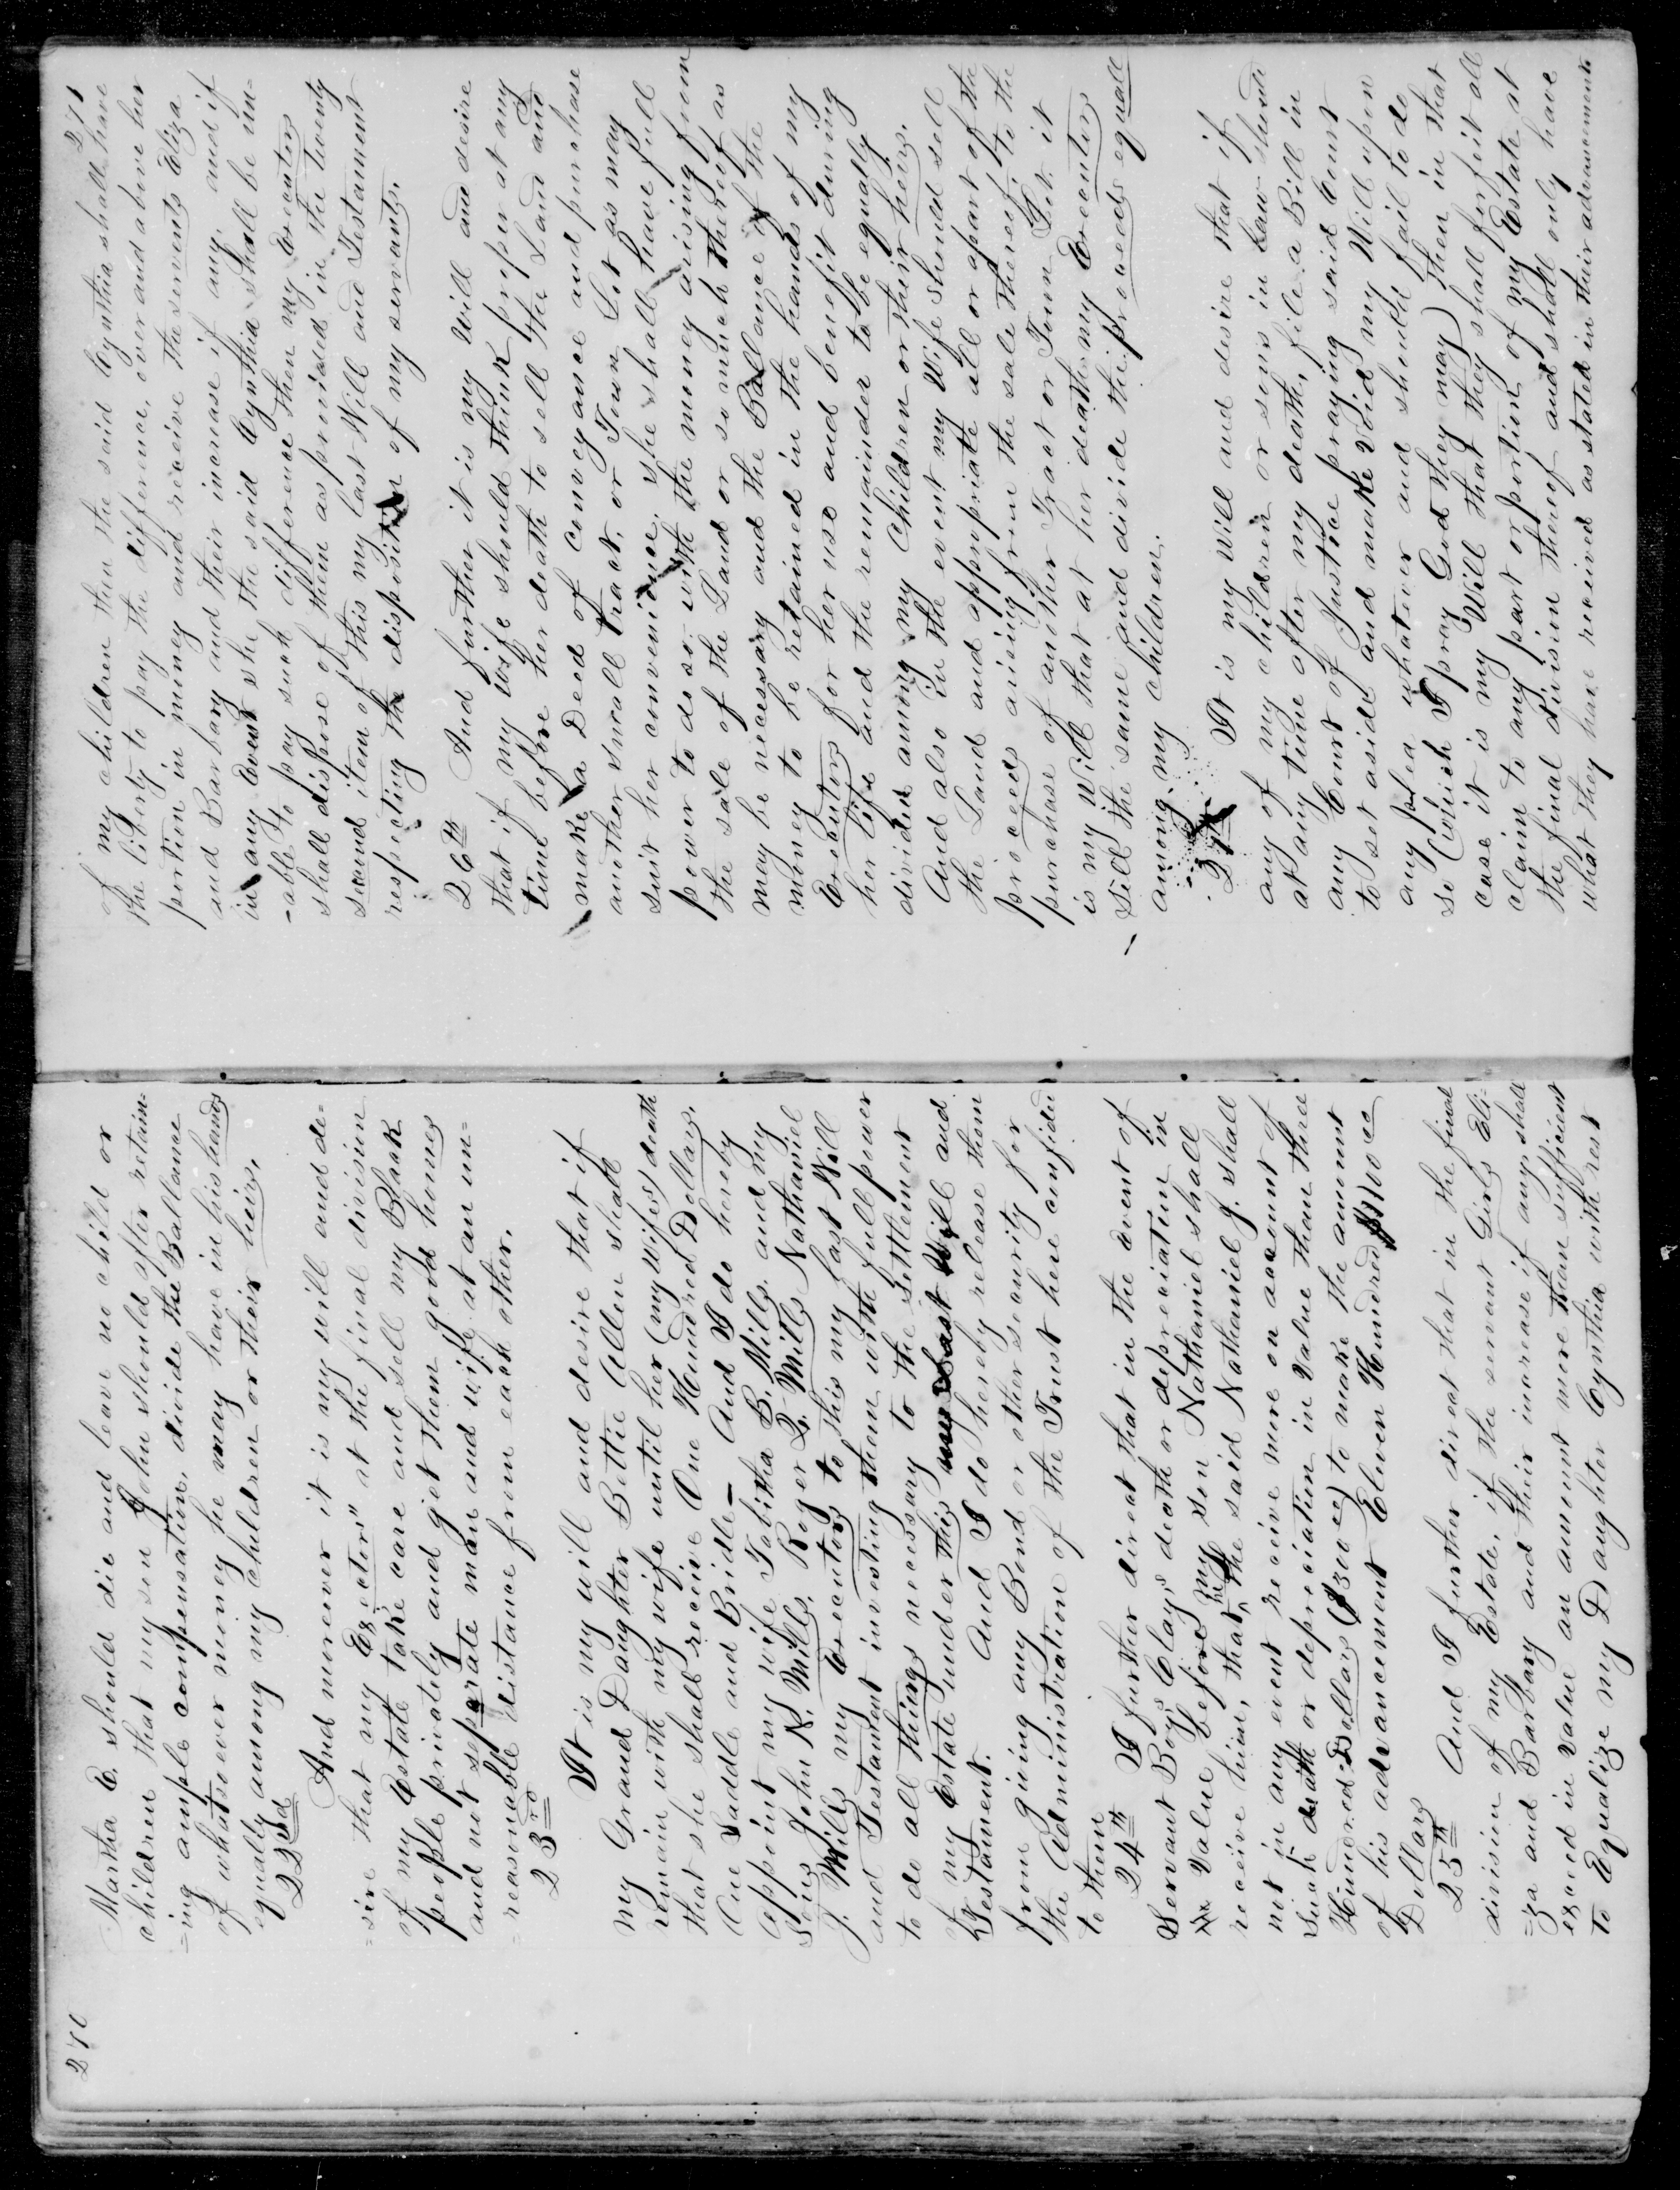 270
Martha E. should die and leave no child or
children that my son John should after retain-
=ing ample compensation, divide the Ballance
of whatsoever money he may have in his hands
equally among my children or their heirs.
22nd
And moreover it is my will and de=
=sire that my Exectors" at the final division
of my Estate take care and sell my Black
people privately and get them good homes
and not seperate man and wife at an un=
=reasonable distance from each other.
23rd
It is my will and desire that if
my Grand Daughter Bettie Allen shall
remain with my wife until her (my wifes) death
that she shall receive One Hundred Dollars.
One Saddle and Bridle— And I do hereby
appoint my wife Tabitha B. Mills. and my
sons John N. Mills, Roger Q. Mills Nathaniel
J. Mills my Executors to this my last Will
and Testament investing them with full power
to do all things necessary to the settlement
of my Estate under this my Last Will and
Testament. And I do hereby release them
from giving any Bond or other security for
the Administration of the Trust here confided
to them
24th I further direct that in the event of
Servant Boy, Clay,s death or depreciation in
the Value before my son Nathaniel shall
receive him, that he the said Nathaniel J. shall
not in any event receive more on account of
such death or depreciation in value than three
Hundred Dollars ($300 00) to make the amount
of his advancement Eleven Hundred $1100 00
Dollars
25th And I further direct that in the final
division of my Estate, if the servant Girls Eli-
=za and Barbary and their increase if any shall
exceed in value an amount more than sufficient
to Equalize my Daughter Cynthia with rest
271
of my children then the said Cynthia shall have
the liberty to pay the difference, over and above her
portion in money and receive the servents Eliza
and Barbary and their increase if any, and if
in any Event she the said Cynthia shall be un-
-able to pay such difference then my Executors
shall dispose of them as provided in the twenty
second item of this my last Will and Testament
respecting the disposition of my servants.
26th And further it is my will and desire
that if my wife should think proper at any
time before her death to sell the Land and
make a Deed of conveyance and purchase
another small tract, or Town Lot as may
suit her convenience, she shall have full
power to do so with the money arising from
the sale of the Land or so much thereof as
may be necessary and the Ballance of the
money to be retained in the hands of my
Executors for her use and benefit during
her life and the remainder to be equally
divided among my Children or their heirs.
And also in the event my Wife should sell
the Land and appropriate all or apart of the
proceeds arising from the sale thereof, to the
purchase of another Tract or Town Lot. it
is my Will that at her death my Executors
sell the same and divide the proceeds equall
among my children.
27th It is my will and desire that if
any of my children or sons in Law should
at any time after my death, file a Bill in
any Court of Justice praying said Court
to set aside and make void my Will upon
any plea whatever and should fail to do
so (which I pray God they may) then in that
case it is my Will that they shall forfeit all
claim to any part or portion of my Estate at
the final division thereof and shall only have
what they have received as stated in their advancements